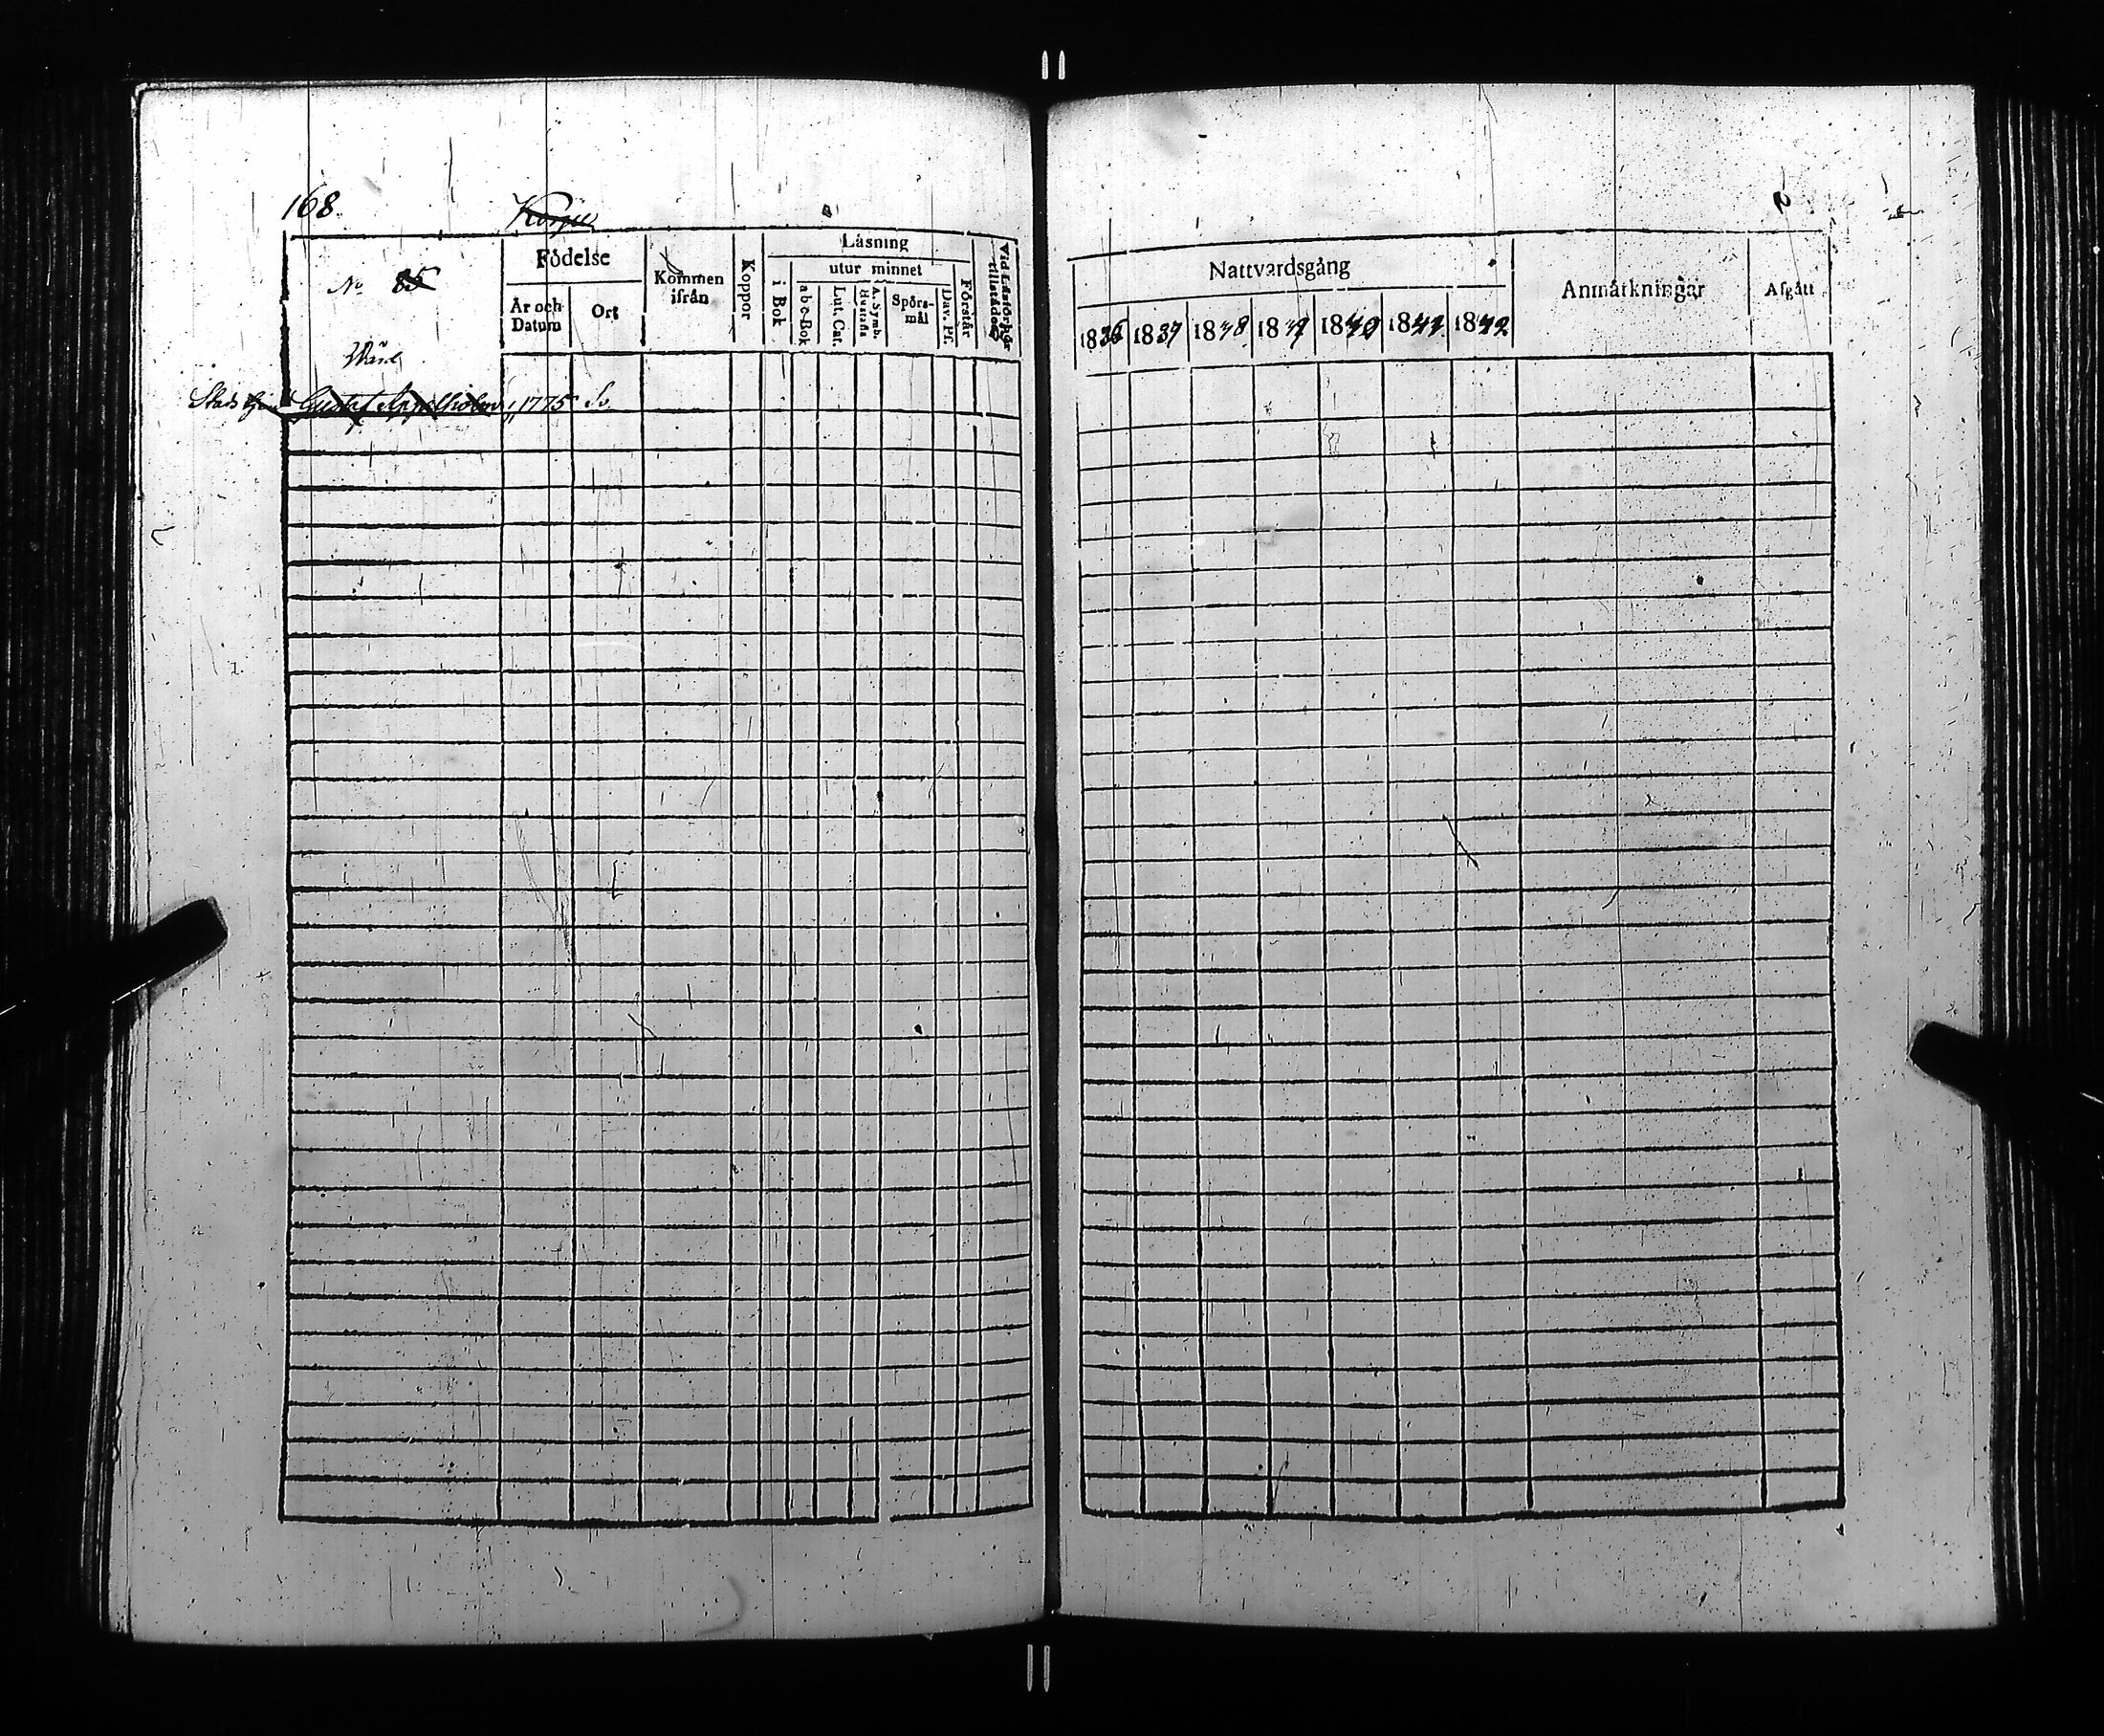 168
No 85
Födelse
År och Datum
Ort
Kommen ifrån
Koppor
Läsning
i Bok
utur minnet
abc-Bok
Lut. Cat.
A. Symb. Hustafla
Spörs-mål
Dav. Ps.
Förstår
Vid Läsförhör tillstädes
Stads Gustaf Appelholm 1775 So.
Nattvardsgång
1836 1837 1838 1839 1840 1841 1842
Anmärkningar
Afgått